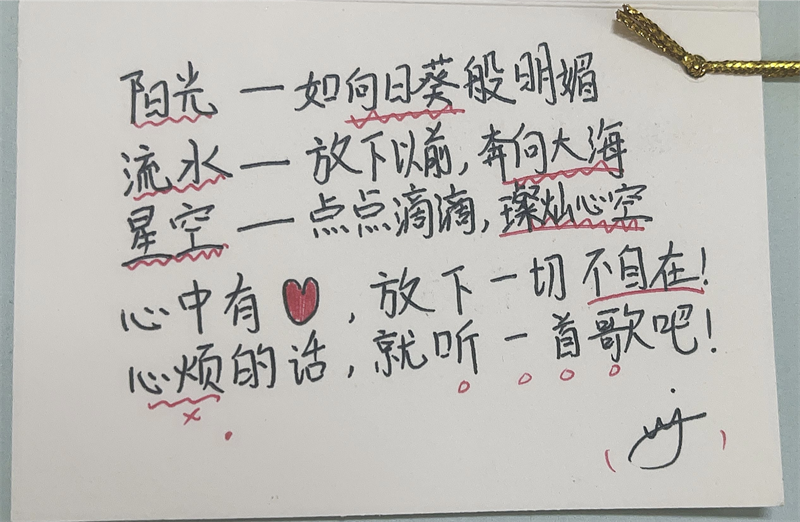 阳光一如向日葵般明媚
流水一放下以前,奔向大海
星空一点点滴滴,璨灿心空
心中有❤,放下一切不自在!
心烦的话,就听一首歌吧!